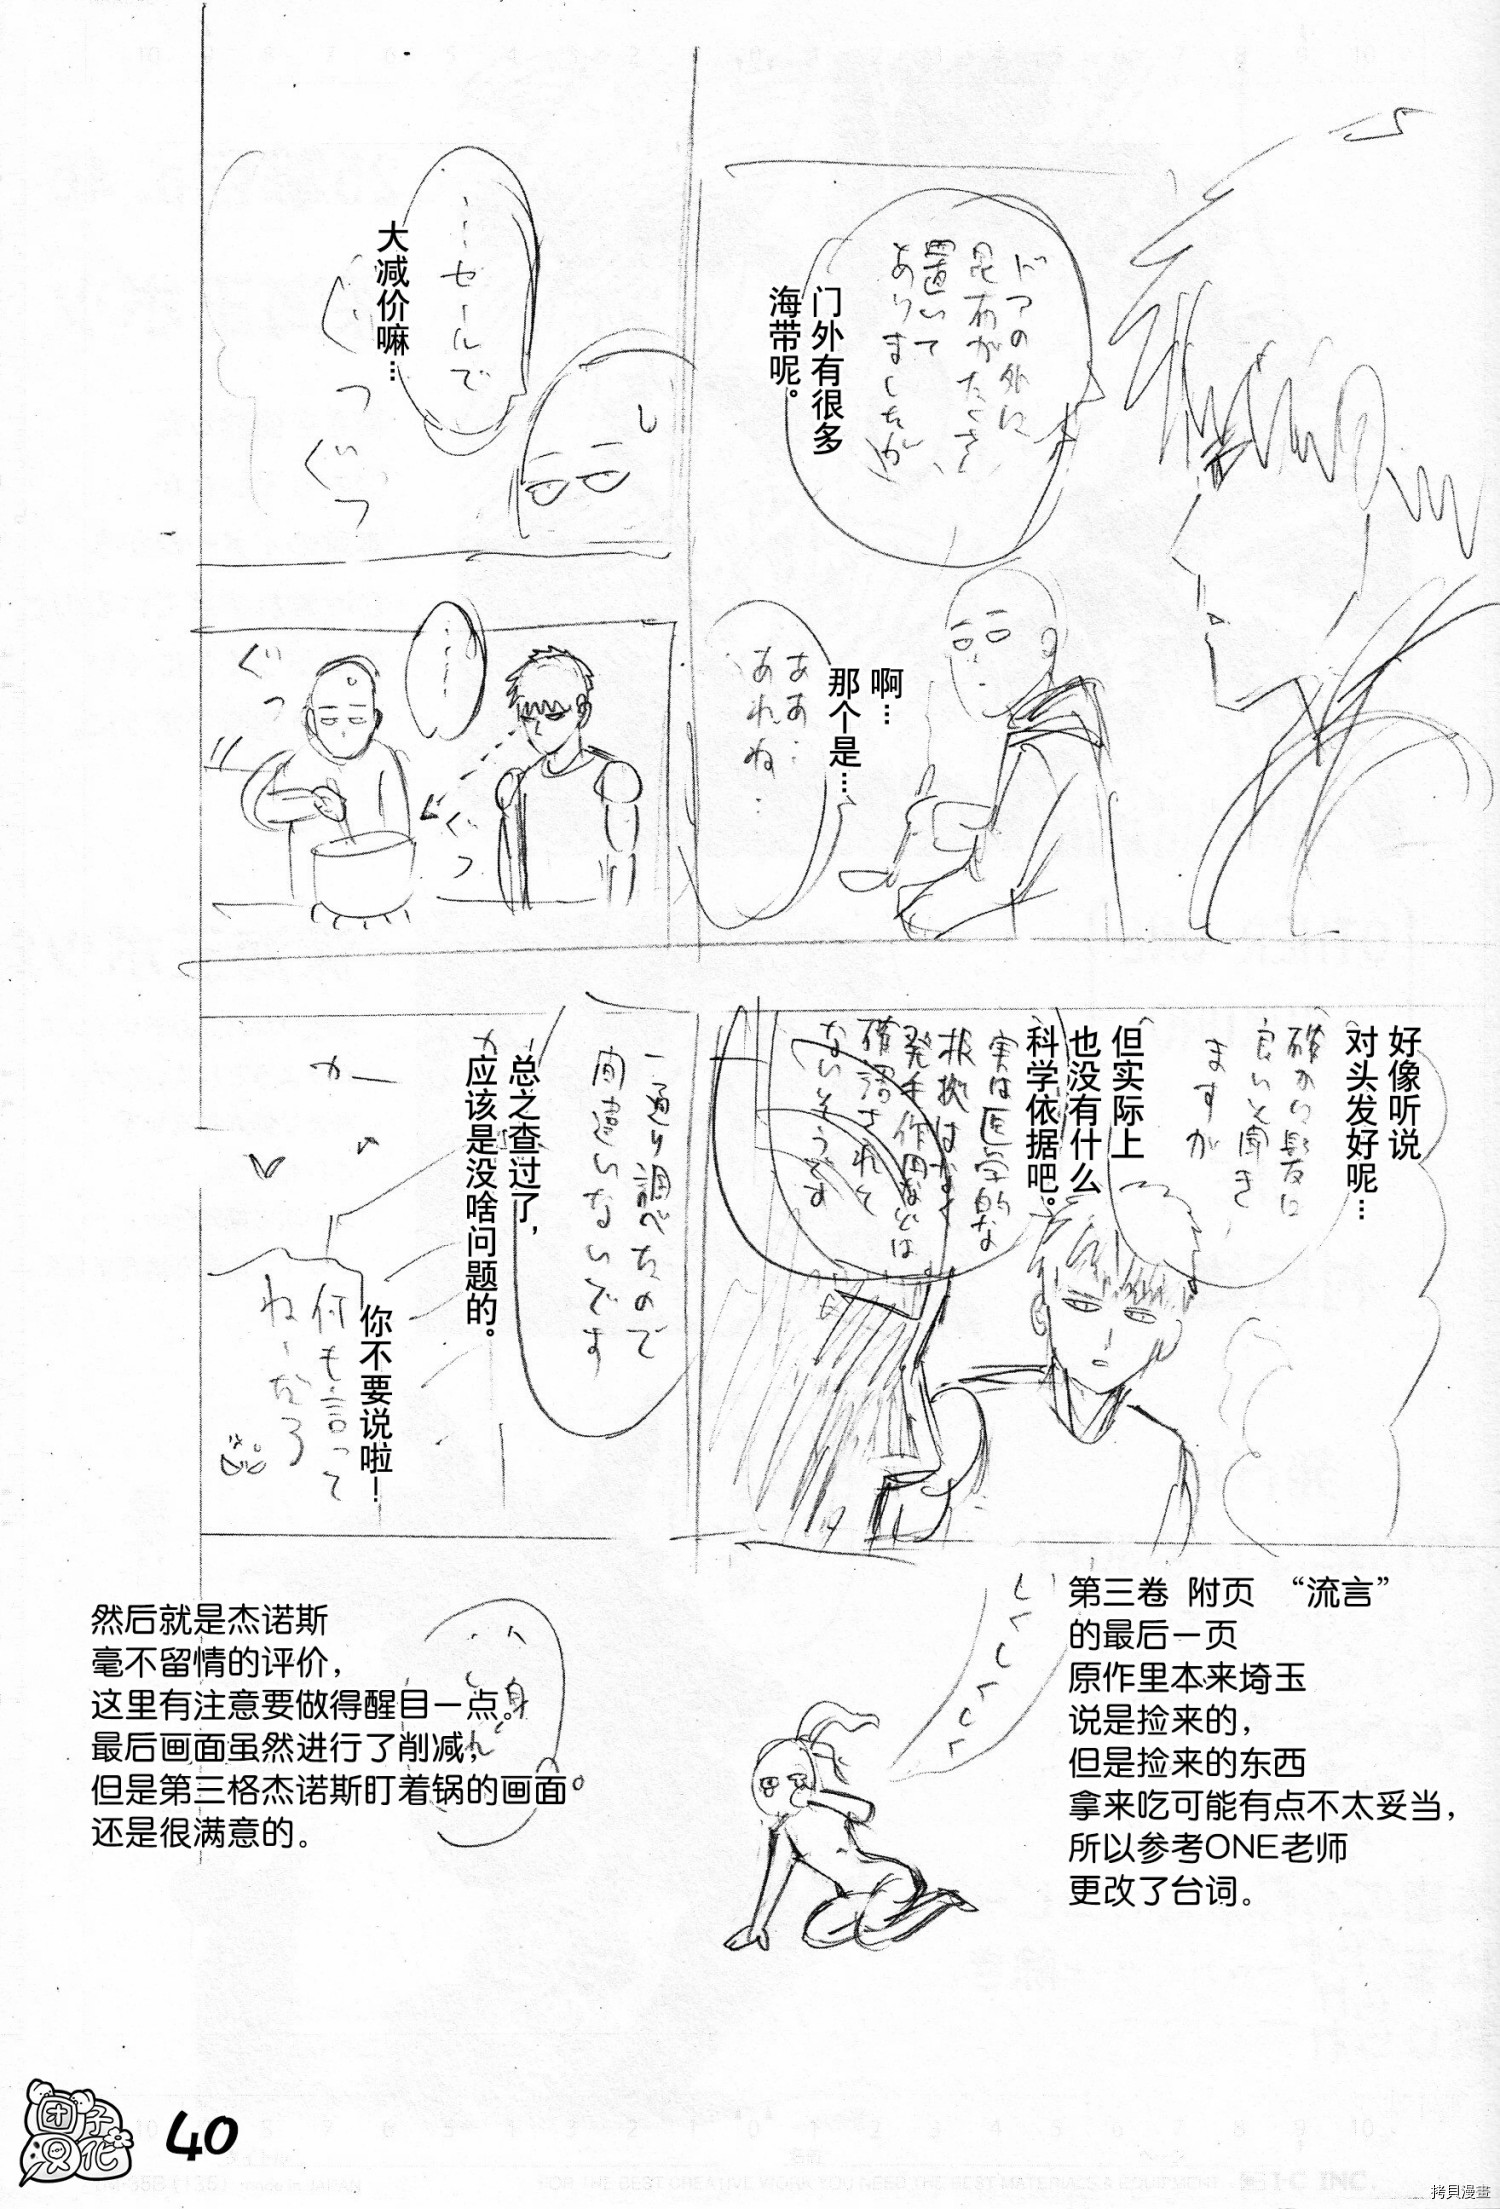 ドアの外に
昆布がたくさん
置いて
ありましたが
门外有很多
海带呢。
ああ…
あれね…
啊…
那个是…
……セールで
大减价嘛…
ぐつ
ぐつ
……
ぐつ
ぐつ
確かに髪に
良いと聞き
ますが
好像听说
对头发好呢…
実は医学的な
根拠はなく
発毛作用などは
確認されて
ないそうです
但实际上
也没有什么
科学依据吧。
一通り調べたので
間違いないです
总之查过了，
应该是没啥问题的。
カー
カー
何も言って
ねーだろ
你不要说啦！
しくしくしく
第三卷 附页 “流言”
的最后一页
原作里本来埼玉
说是捡来的，
但是捡来的东西
拿来吃可能有点不太妥当，
所以参考ONE老师
更改了台词。
然后就是杰诺斯
毫不留情的评价，
这里有注意要做得醒目一点。
最后画面虽然进行了削减，
但是第三格杰诺斯盯着锅的画面
还是很满意的。
团子汉化
40
拷貝漫畫